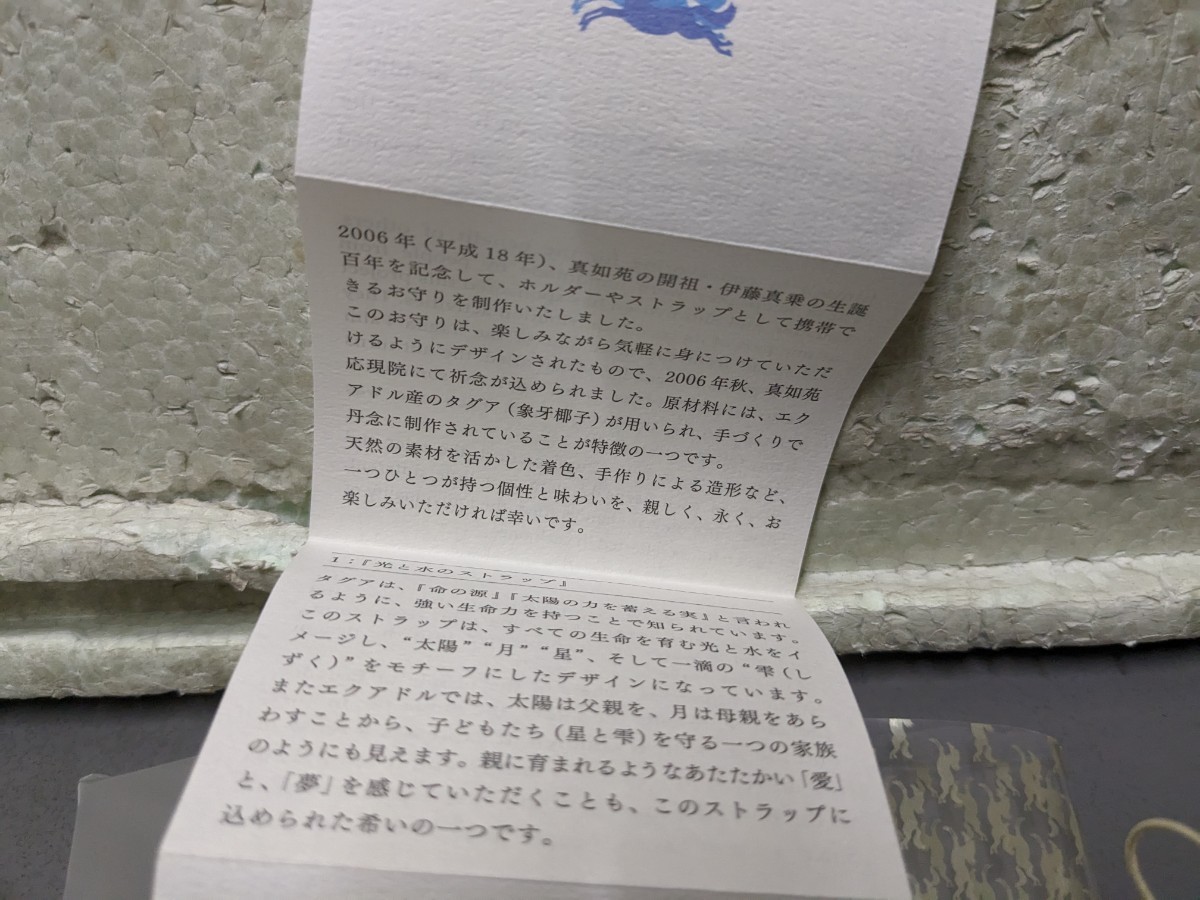 2006年(平成18年)、真如苑の開祖・伊藤真乗の生誕
百年を記念して、ホルダーやストラップとして携帯で
きるお守りを制作いたしました。
このお守りは、楽しみながら気軽に身につけていただ
けるようにデザインされたもので、2006年秋、真如苑
応現院にて祈念が込められました。原材料には、エク
アドル産のタグア(象牙椰子)が用いられ、手づくりで
丹念に制作されていることが特徴の一つです。
天然の素材を活かした着色、手作りによる造形など、
一つひとつが持つ個性と味わいを、親しく、永く、お
楽しみいただければ幸いです。
1:『光と水のストラップ』
タグアは、『命の源』『太陽の力を蓄える実』と言われ
るように、強い生命力を持つことで知られています。
このストラップは、すべての生命を育む光と水をイ
メージし、“太陽”“月”“星”、そして一滴の“雫(し
ずく)”をモチーフにしたデザインになっています。
またエクアドルでは、太陽は父親を、月は母親をあら
わすことから、子どもたち(星と雫)を守る一つの家族
のようにも見えます。親に育まれるようなあたたかい「愛」
と、「夢」を感じていただくことも、このストラップに
込められた希いの一つです。